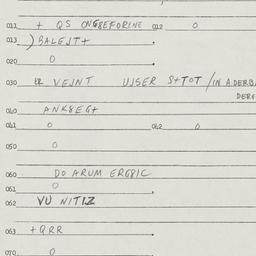 011 + QS 012 0
013 )BALEJT+
020 0
030 VEJNT UJSER S+TOT /IN A DERB
DERF
040 ANK8EG+
041 0 042 0
050 0
060 DO ARUM ERG8IC
061 0
062 VU NITIZ
063 +QRR
070 0